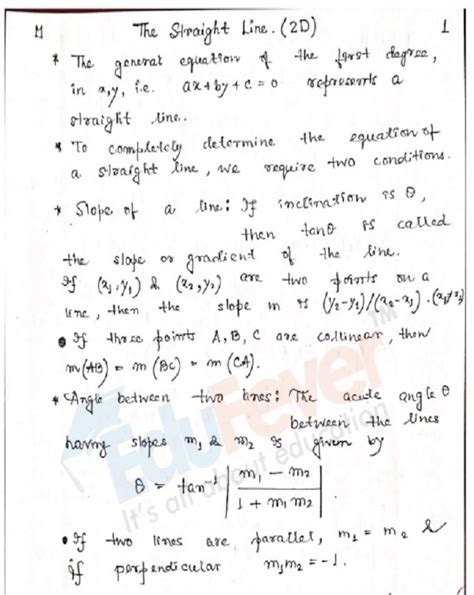 M The Straight Line. (2D) 1
* The general equation of the first degree,
in x,y, i.e. ax+by+c=0 represents a
straight line.
* To completely determine the equation of
a straight line, we require two conditions.
* Slope of a line: If inclination is θ,
then tanθ is called
the slope or gradient of the line.
If (x₁,y₁) & (x₂,y₂) are two points on a
line, then the slope m is (y₂-y₁)/(x₂-x₁).
• If three points A, B, C are collinear, then
m(AB) = m(BC) = m(CA).
* Angle between two lines: The acute angle θ
between the lines
having slopes m₁ & m₂ is given by
θ = tan⁻¹ | (m₁ - m₂) / (1 + m₁m₂) |
• If two lines are parallel, m₁ = m₂ &
if perpendicular m₁m₂ = -1.
EduFever™
It's all about education